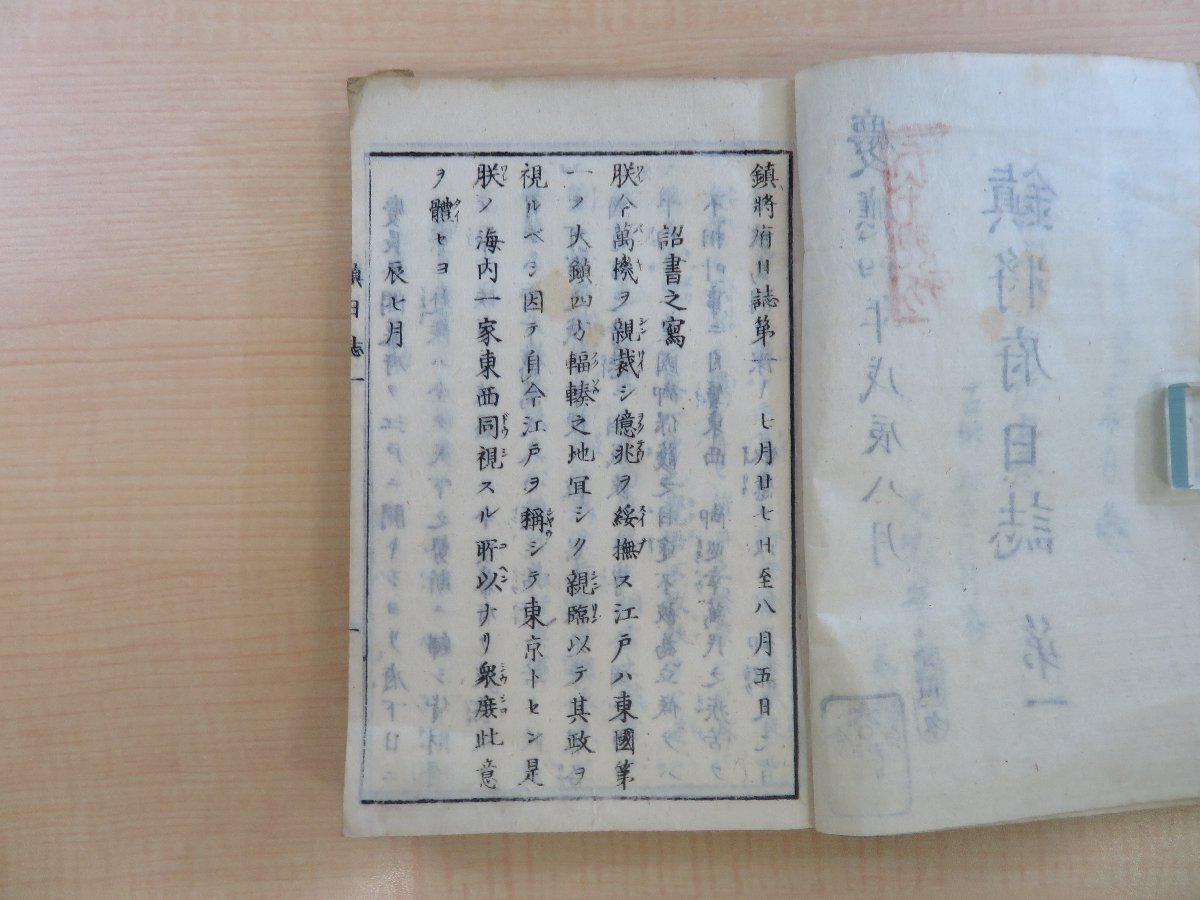 鎮將府日誌第一 七月廿七日至八月五日
詔書之寫
朕今萬機ヲ親裁シ億兆ヲ綏撫ス江戸ハ東國第
一ノ大鎮四方輻輳之地宜シク親臨以テ其政ヲ
視ルベシ因テ自今江戸ヲ稱シテ東京トセン是
朕ノ海内一家東西同視スル所以ナリ衆庶此意
ヲ體セヨ
辰七月
鎮日誌一
一
鎮將府日誌 第一
慶應四年戊辰八月